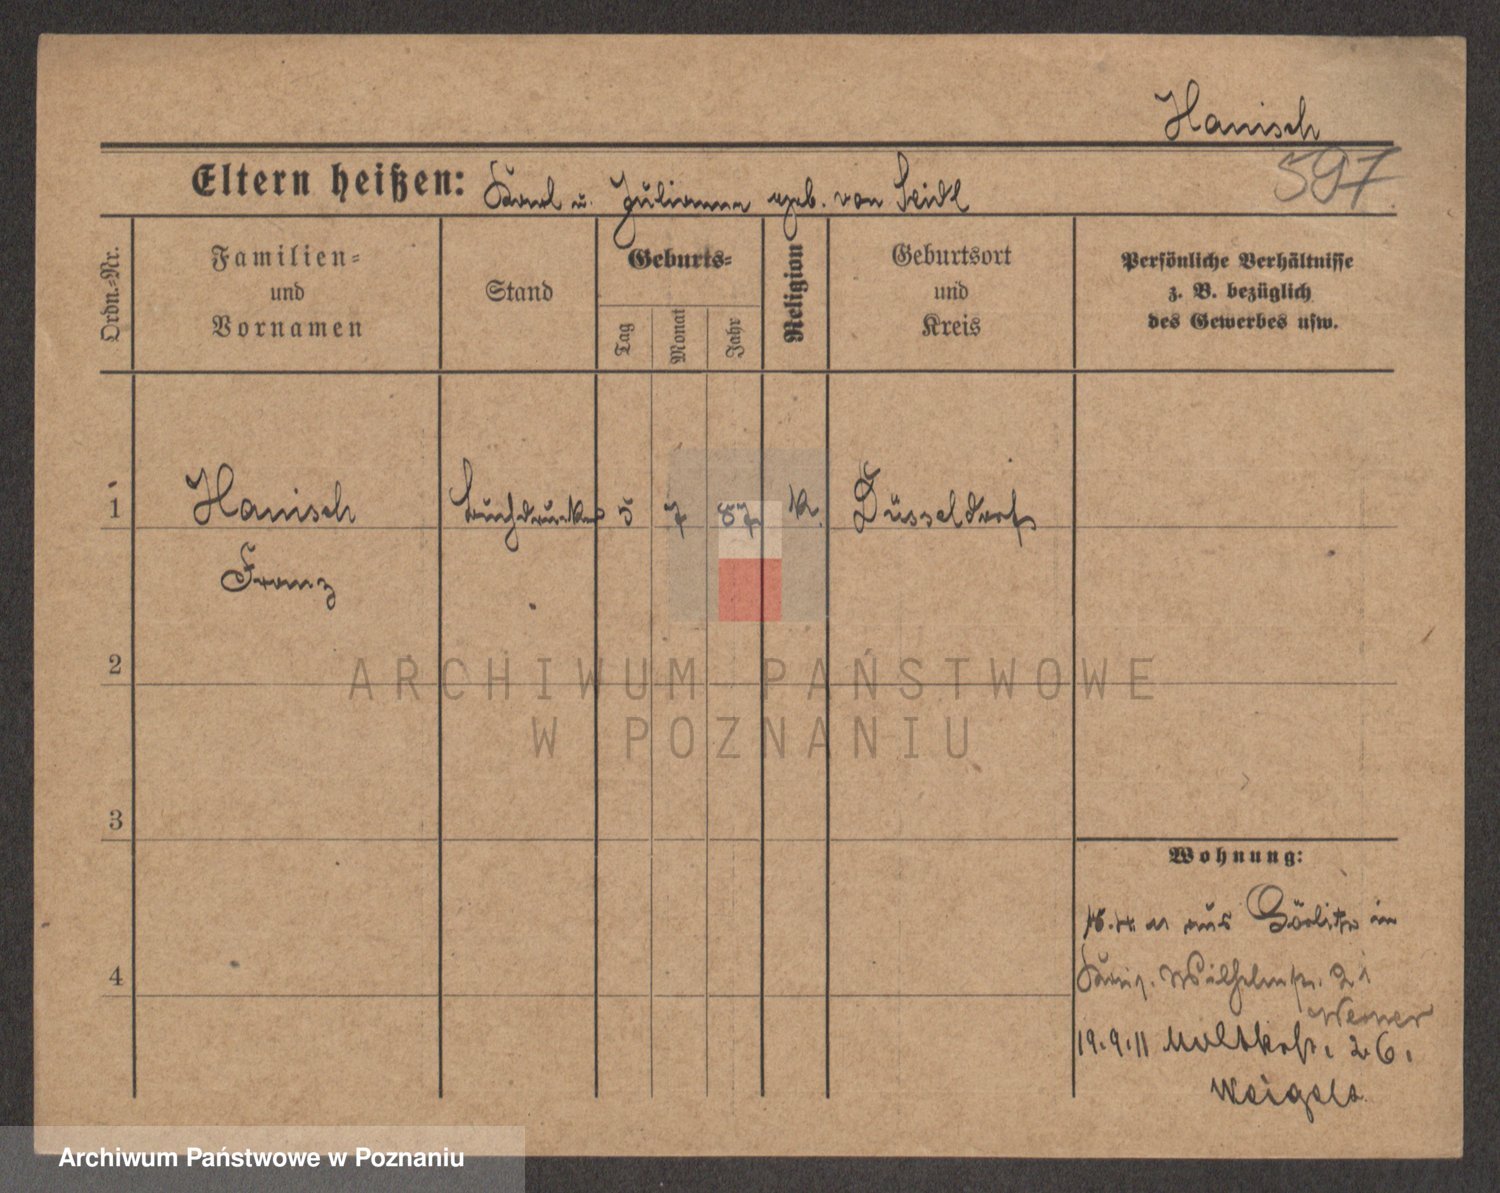 Hanisch
597.
Eltern heißen: Karl u. Julianna geb. von Seidl
Ordn.-Nr.
Familien-
und
Vornamen
Stand
Geburts-
Tag
Monat
Jahr
Religion
Geburtsort
und
Kreis
Persönliche Verhältnisse
z. B. bezüglich
des Gewerbes usw.
1 Hanisch Buchdrucker 5 7 87 k. Düsseldorf
Franz
2
ARCHIWUM PAŃSTWOWE
W POZNANIU
3
Wohnung:
aus Görlitz in
4
Wilhelmstr. 21
Werner
19.9.11 Moltkestr. 26.
Weigelt
Archiwum Państwowe w Poznaniu